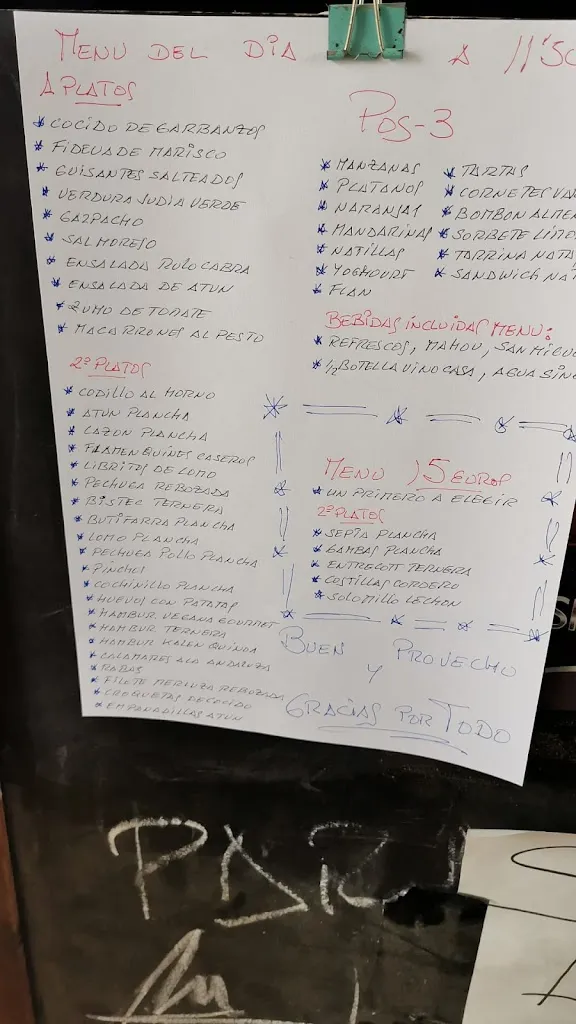 MENU DEL DIA A 11'50
1 PLATOS
* COCIDO DE GARBANZOS
* FIDEUA DE MARISCO
* GUISANTES SALTEADOS
* VERDURA JUDIA VERDE
* GAZPACHO
* SALMOREJO
* ENSALADA RULO CABRA
* ENSALADA DE ATUN
* ZUMO DE TOMATE
* MACARRONES AL PESTO
2º PLATOS
* CODILLO AL HORNO
* ATUN PLANCHA
* CAZON PLANCHA
* FLAMENQUINES CASEROS
* LIBRITOS DE LOMO
* PECHUGA REBOZADA
* BISTEC TERNERA
* BUTIFARRA PLANCHA
* LOMO PLANCHA
* PECHUGA POLLO PLANCHA
* PINCHOS
* COCHINILLO PLANCHA
* HUEVOS CON PATATAS
* HAMBUR. VEGANA GOURMET
* HAMBUR TERNERA
* HAMBUR KALEN QUINOA
* CALAMARES ALA ANDALUZA
* RABAS
* FILETE MERLUZA REBOZADA
* CROQUETAS DE COCIDO
* EMPANADILLAS ATUN
POS-3
* MANZANAS
* PLATANOS
* NARANJAS
* MANDARINAS
* NATILLAS
* YOGHOURT
* FLAN
* TARTAS
* CORNETES VA
* BOMBON ALME
* SORBETE LIMO
* TARRINA NATA
* SANDWICH NA
BEBIDAS INCLUIDAS MENU:
* REFRESCOS, MAHOU, SAN MIGU
* 1/2 BOTELLA VINO CASA, AGUA SIN
MENU 15 EUROS
* UN PRIMERO A ELEGIR
2º PLATOS
* SEPIA PLANCHA
* GAMBAS PLANCHA
* ENTRECOTT TERNERA
* COSTILLAS CORDERO
* SOLOMILLO LECHON
BUEN PROVECHO
Y
GRACIAS POR TODO
PAR